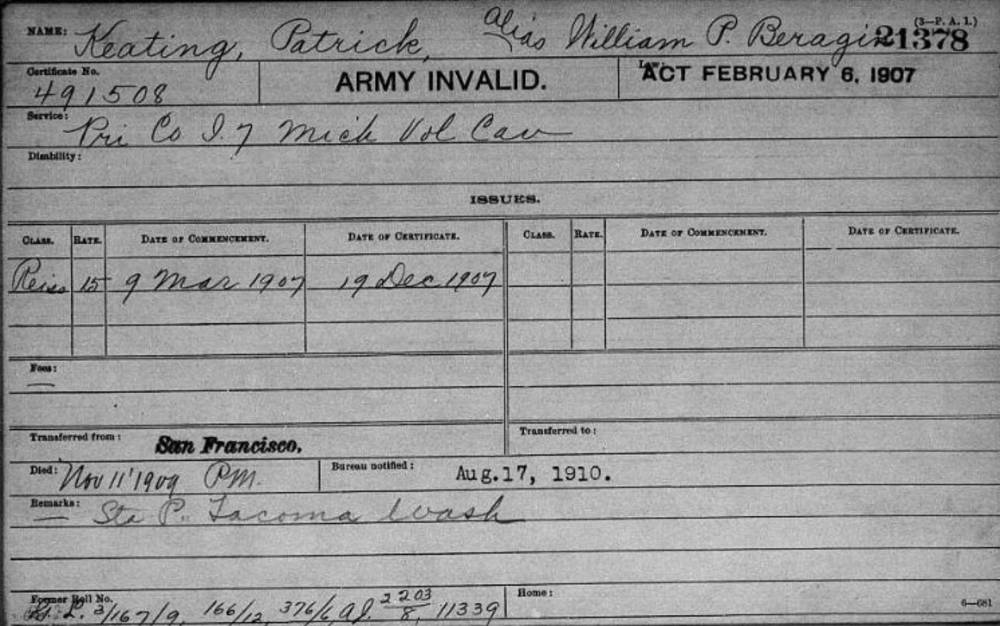 (3—P. A. I.)
NAME: Keating, Patrick, Alias William P. Beragin 21378
Certificate No. 491508
ARMY INVALID.
ACT FEBRUARY 6, 1907
Service: Pri Co I. 7 Mich Vol Cav
Disability:
ISSUES.
CLASS. RATE. DATE OF COMMENCEMENT. DATE OF CERTIFICATE. CLASS. RATE. DATE OF COMMENCEMENT. DATE OF CERTIFICATE.
Reiss 15 9 Mar 1907 19 Dec 1907
Fees: —
Transferred from: San Francisco. Transferred to:
Died: Nov 11 '1909 P.M. Bureau notified: Aug.17, 1910.
Remarks: — Sta P. Tacoma Wash
Former Roll No. Home:
L. 3/167/9, 166/12, 376/6, 2203/8, 11339
6—681